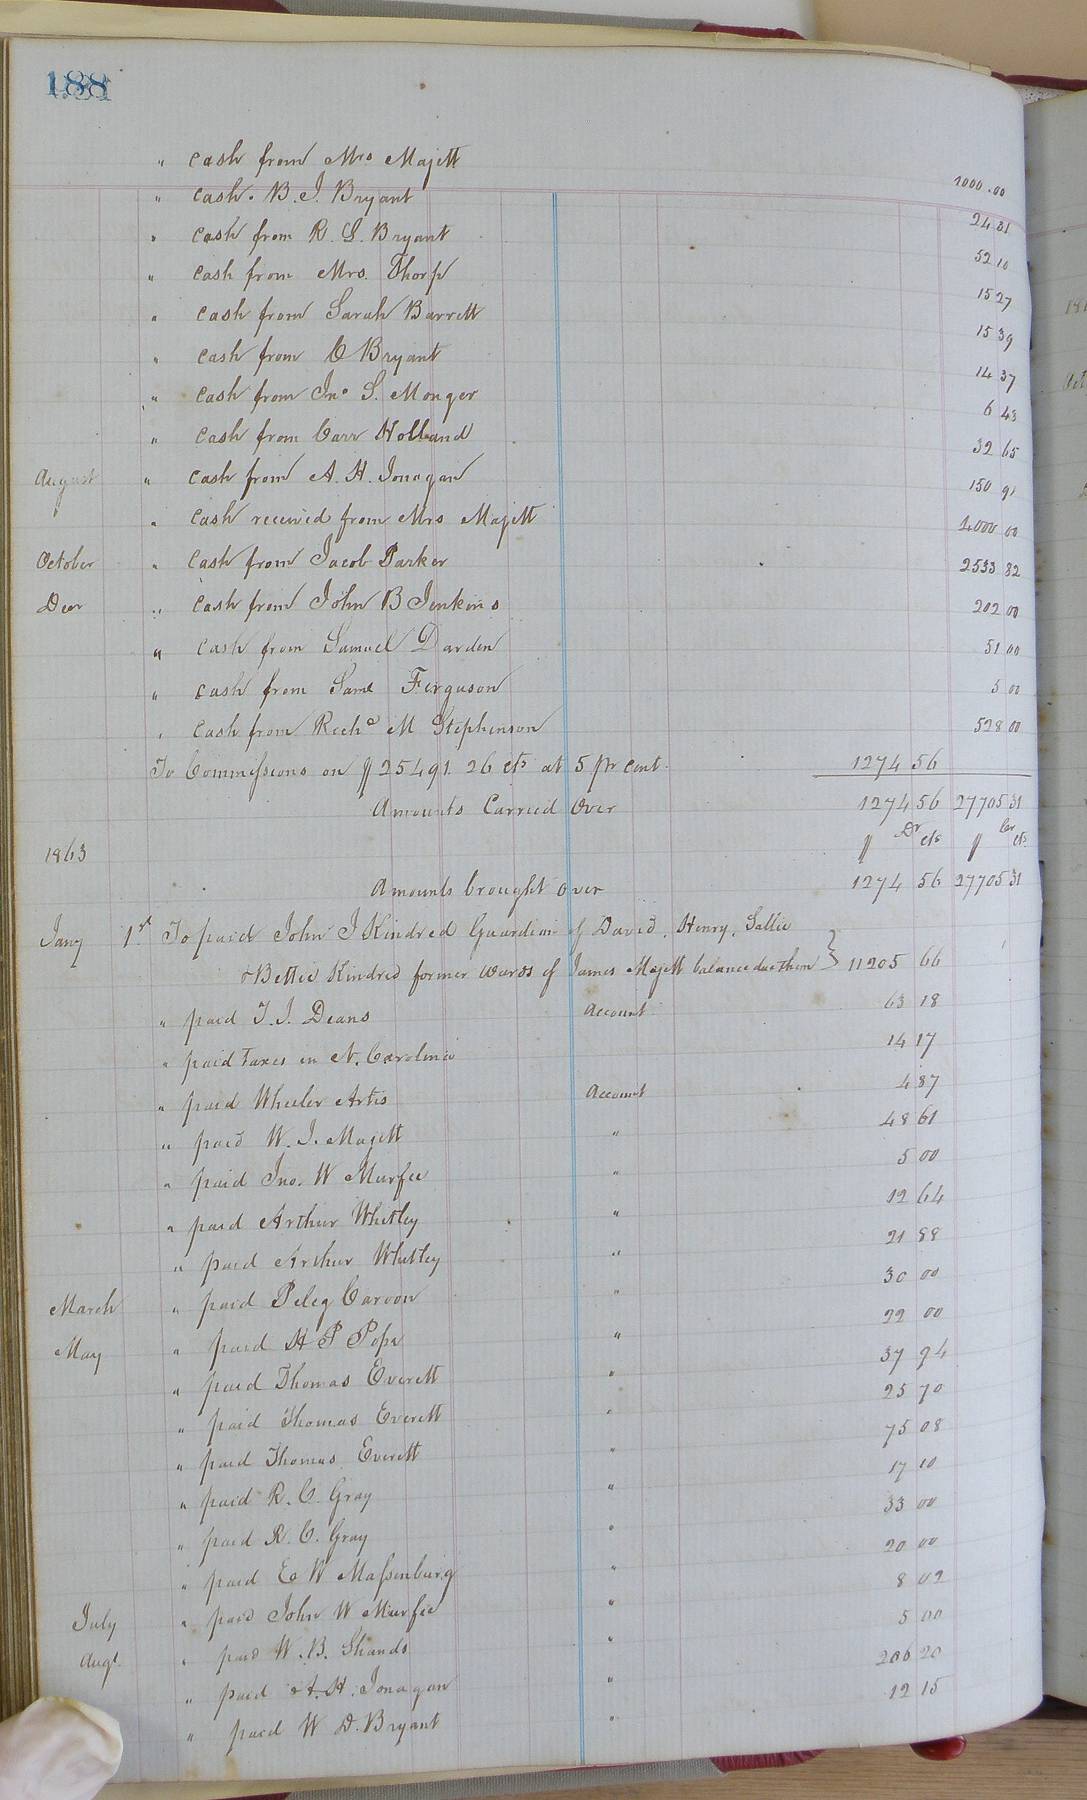 188
" Cash from Mrs Majett 1000.00
" Cash. B. J. Bryant 24 81
" Cash from R. S. Bryant 52 10
" Cash from Mrs. Thorp 15 27
" Cash from Sarah Barrett 15 39
" Cash from C Bryant 14 37
" Cash from Jno S. Monger 6 43
" Cash from Carr Holland 32 65
August " Cash from A. H. Jonagan 150 91
" Cash received from Mrs Majett 1000 00
October " Cash from Jacob Parker 2533 82
Decr " Cash from John B Jenkins 202 00
" Cash from Samuel Darden 51 00
" Cash from Saml Ferguson 5 00
" Cash from Richd M Stephenson 528 00
To Commissions on $25491. 26 cts at 5 pr cent. 1274 56
Amounts Carried Over 1274 56 27705 31
1863 $ Dr cts $ Cr cts
Amounts brought over 1274 56 27705 31
Jany 1st To paid John J Kindred Guardian of David, Henry, Sallie
& Bettie Kindred former wards of James Majett balance due them } 11205 66
" paid T. J. Deans Account 63 18
" paid Taxes in N. Carolina 14 17
" paid Wheeler Artis Account 4 87
" paid W. J. Majett " 48 61
" paid Jno. W Murfee " 5 00
" paid Arthur Whitley " 12 64
" paid Arthur Whitley " 21 88
March " paid Peleg Carvon " 30 00
May " paid H P Pope " 22 00
" paid Thomas Everett " 37 94
" paid Thomas Everett " 25 70
" paid Thomas Everett " 75 08
" paid R. C. Gray " 17 10
" paid R. C. Gray " 33 00
" paid E W Massenburg " 20 00
July " paid John W Murfee " 8 02
Augt. " paid W. B. Shands " 5 00
" paid A. H. Jonagan " 206 20
" paid W D. Bryant " 12 15